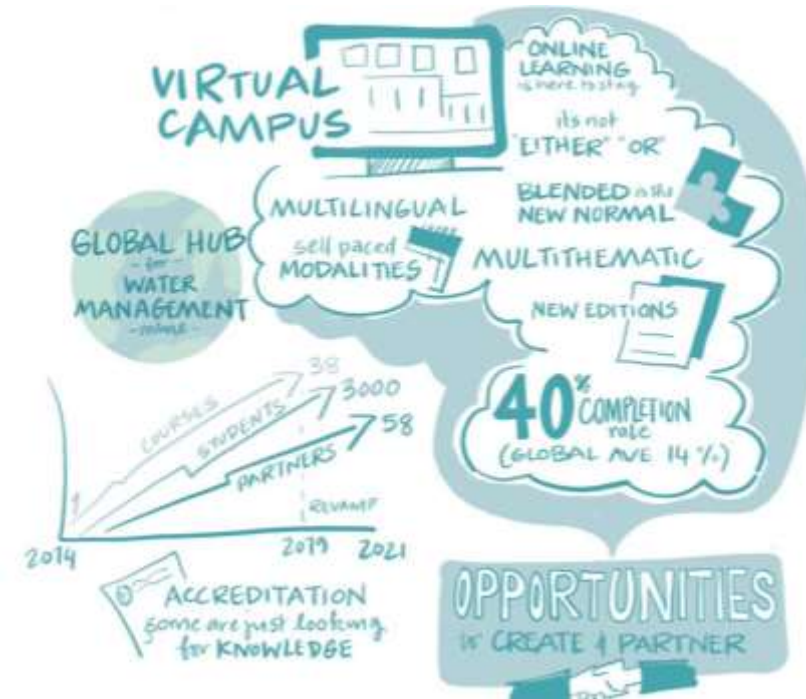 VIRTUAL
CAMPUS
ONLINE
LEARNING
is here to stay
it's not
"EITHER" "OR"
BLENDED is the
NEW NORMAL
MULTILINGUAL
self paced
MODALITIES
MULTITHEMATIC
NEW EDITIONS
GLOBAL HUB
for
WATER
MANAGEMENT
40% COMPLETION
rate
(GLOBAL AVE 14%)
COURSES
38
STUDENTS
3000
PARTNERS
58
1
REVAMP
2014
2019
2021
ACCREDITATION
some are just looking
for KNOWLEDGE
OPPORTUNITIES
to CREATE & PARTNER